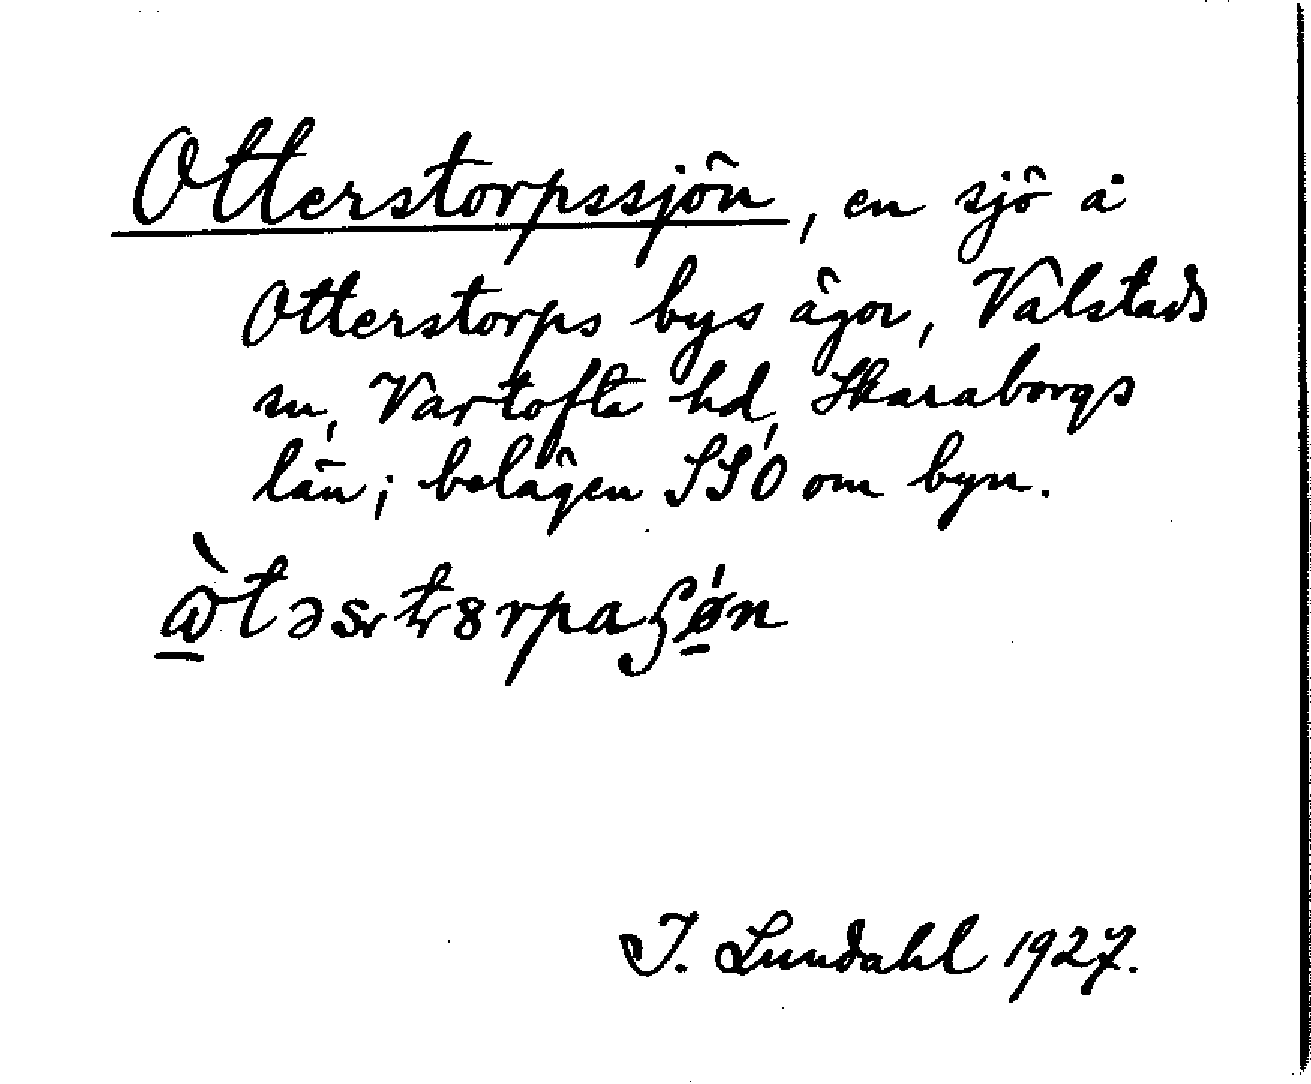 Otterstorpssjön, en sjö å
Otterstorps bys ägor, Valstads
sn, Vartofta hd, Skaraborgs
län; belägen SSÖ om byn.
I. Lundahl 1927.